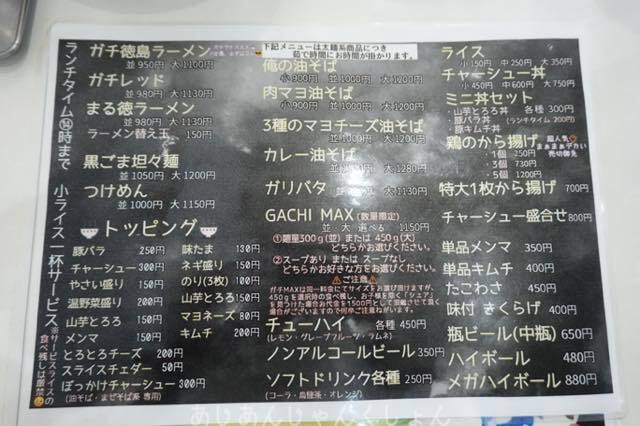 ランチタイム⑭時まで 小ライス一杯サービス
※サービスライスの食べ残しは厳禁
ガチ徳島ラーメン
並950円 大1100円
ガチレッド
並980円 大1130円
まる徳ラーメン
並980円 大1130円
ラーメン替え玉 150円
黒ごま坦々麺
並1050円 大1200円
つけめん
並1000円 大1150円
トッピング
豚バラ 250円
チャーシュー 300円
やさい盛り 150円
温野菜盛り 200円
山芋とろろ 150円
メンマ 150円
とろとろチーズ 200円
スライスチェダー 50円
ぼっかけチャーシュー 300円
(油そば・まぜそば系 専用)
味たま 130円
ネギ盛り 150円
のり(3枚) 100円
山芋とろろ 150円
マヨネーズ 80円
キムチ 200円
下記メニューは太麺系商品につき
茹で時間にお時間が掛かります。
俺の油そば
小900円 並1000円 大1200円
肉マヨ油そば
小900円 並1000円 大1200円
3種のマヨチーズ油そば
大1240円
カレー油そば
大1280円
ガリバタ
大1130円
GACHI MAX(数量限定)
並・大 選べる 1150円
①麺量300g(並)または 450g(大)
どちらかお選びください。
②スープあり または スープなし
どちらかお好きな方をお選びください。
⚠ご注意⚠
ガチMAXは同一料金にてサイズをお選び頂けますが、
450gを選択時の食べ残し、お子様を除く「シェア」
を見つけた場合お代金を1500円として頂戴させて頂く
場合がございますので何卒ご注意ねがいます。
チューハイ 各種 450円
(レモン・グレープフルーツ・ラムネ)
ノンアルコールビール 350円
ソフトドリンク各種 250円
(コーラ・烏龍茶・オレンジ)
ライス
小150円 中250円 大350円
チャーシュー丼
小450円 中600円 大750円
ミニ丼セット
・山芋とろろ丼 各種 300円
・豚バラ丼 (ランチタイム 200円)
・豚キムチ丼
鶏のから揚げ
超人気♡
まぁまぁデカい
売切御免
・1個 250円
・3個 730円
・5個 1200円
特大1枚から揚げ 700円
チャーシュー盛合せ 800円
単品メンマ 350円
単品キムチ 400円
たこわさ 450円
味付 きくらげ 400円
瓶ビール(中瓶) 650円
ハイボール 480円
メガハイボール 880円
あじあんじゃんくしょん